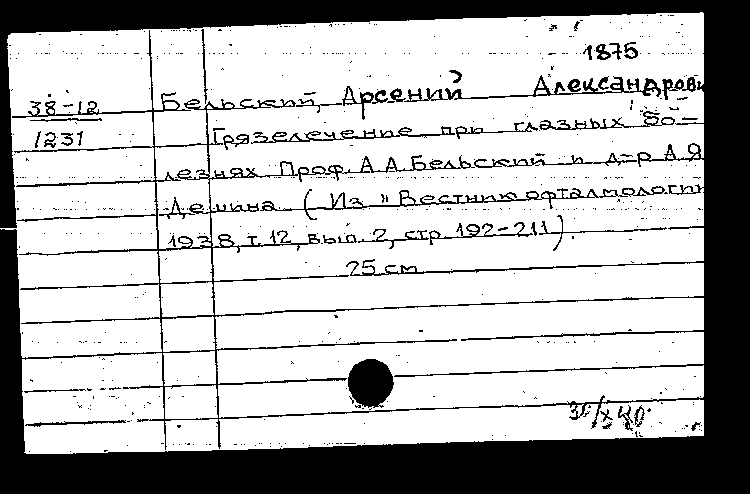 1875
38-12 Бельский, Арсений Александрови
1231 Грязелечение при глазных бо-
лезнях Проф. А А. Бельский и д-р А. Я
Дешина ( Из " Вестник офталмологии
1938, т. 12, вып. 2, стр. 192-211).
25 см